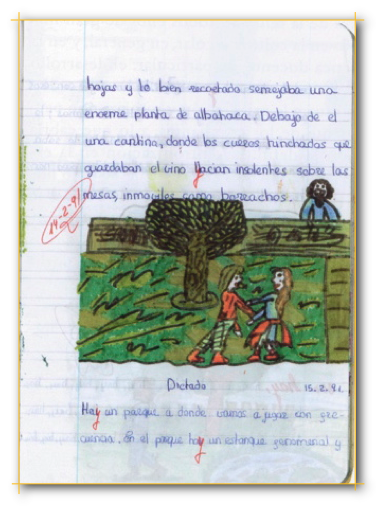 hojas y lo bien recortado semejaba una
enorme planta de albahaca. Debajo de el
una cantina, donde los cueros hinchados que
guardaban el vino yacian insolentes sobre las
mesas, inmoviles como borrachos.
14-2-91
Dictado 15.2.91
Hay un parque a donde vamos a jugar con fre-
cuencia. En el parque hay un estanque fenomenal y